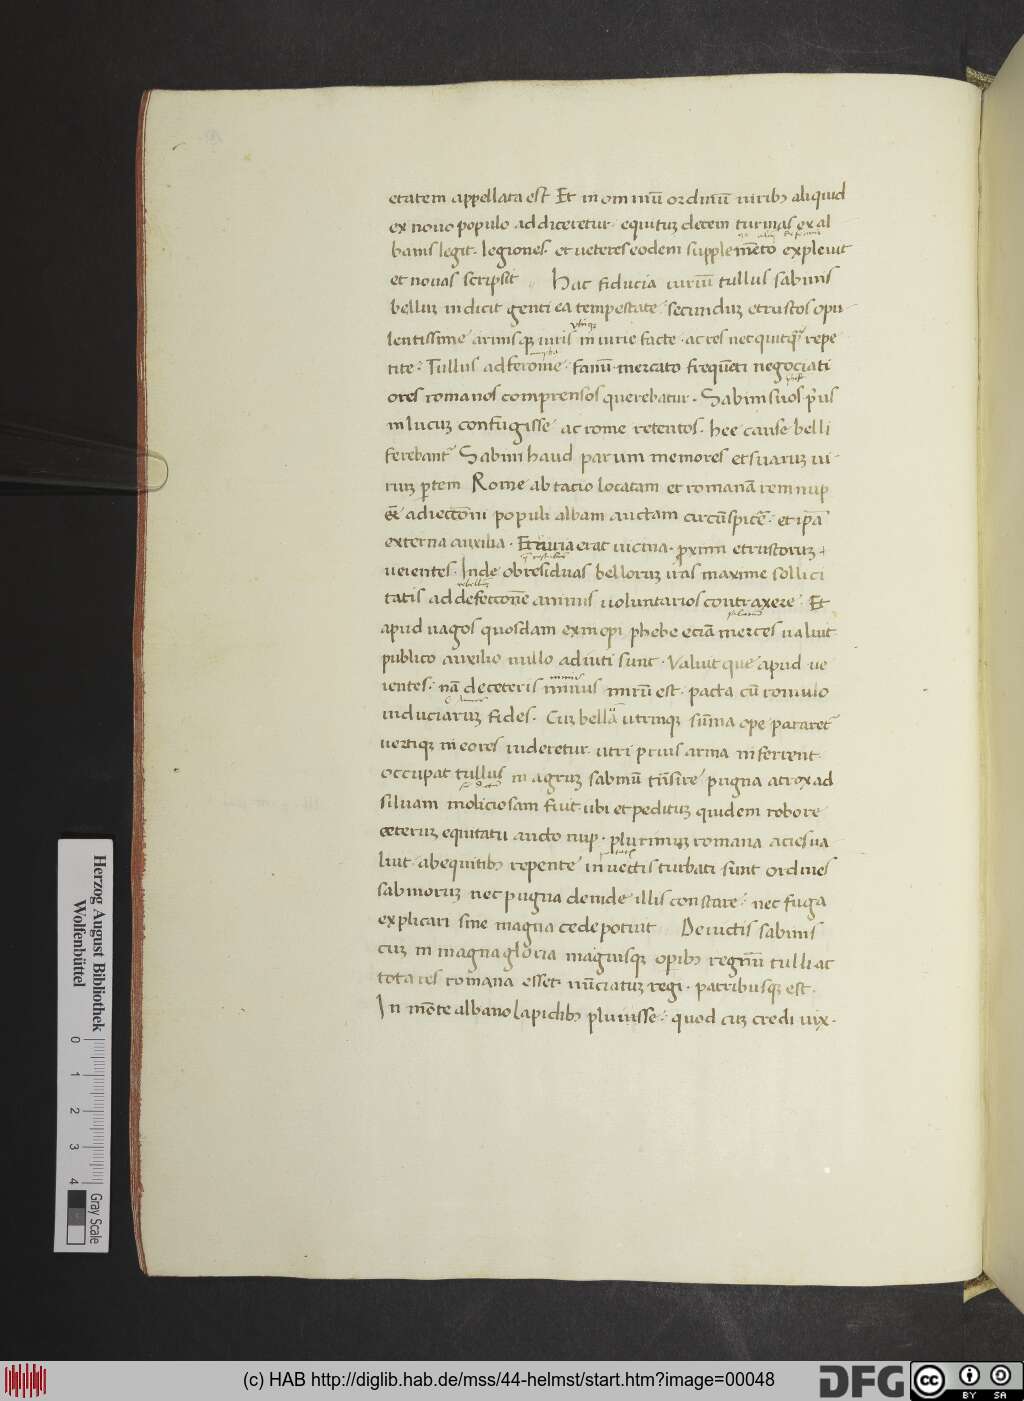 etatem appellata est Et in omniū ordinū uirib; aliquid
ex nouo populo addiceretur. equituȝ decem turmas ex al
banis legit. legiones. et ueteres eodem supplemēto expleuit
et nouas scripsit Hac fiducia uiriū tullus sabinis
belluȝ indicit genti ea tempestate secunduȝ etruscos opu
lentissime armisqȝ uiris iniurie facte. ac res nec quitqȝ repe
tite: Tullus ad feronie fanū mercato frequēti negociati
ores romanos comprensos querebatur. Sabini suos prius
in lucuȝ confugisse ac rome retentos. hee cause belli
ferebant Sabini haud parum memores et suaruȝ ui
riuȝ ptem Rome ab tacio locatam et romanā rem nup
adiectioni populi albam auctam circūspicere et ipā
externa auxilia. Etruria erat uicina. proximi etruscoruȝ
ueientes. Inde ob residuas belloruȝ iras maxime sollici
tatis ad defeccionē animis uoluntarios contraxere. Et
apud uagos quosdam ex inopi phebe eciā merces ualuit
publico auxilio nullo adiuti sunt. Valuit que apud ue
ientes. nā de ceteris minus mirū est. pacta cū romulo
induciaruȝ fides. Cuȝ bellā utrinqȝ sūma ope pararet
uertiqȝ in eo res uideretur. utri prius arma inferrent.
occupat tullus in agruȝ sabinū trāsire pugna atrox ad
siluam moliciosam fuit. ubi et pedituȝ quidem robore
ceteruȝ equitatu aucto nup. plurimuȝ romana acies ua
luit. ab equitib; repente inuectis turbati sunt ordines
sabinoruȝ nec pugna deinde illis constare. nec fuga
explicari sine magna cede potuit Deuictis sabinis
cuȝ in magna gloria magnisqȝ opib; regnū tulli ac
tota res romana esset. nūciatuȝ regi. patribusqȝ est.
In mōte albano lapidib; pluuisse: quod cuȝ credi uix.
Herzog August Bibliothek
Wolfenbüttel
0 1 2 3 4
Gray Scale
(c) HAB http://diglib.hab.de/mss/44-helmst/start.htm?image=00048
DFG
cc BY SA